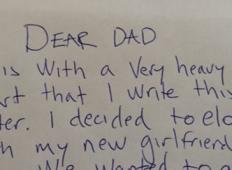 DEAR DAD
is with a very heavy
rt that I write this
ter. I decided to elo
h my new girlfriend
We wanted to